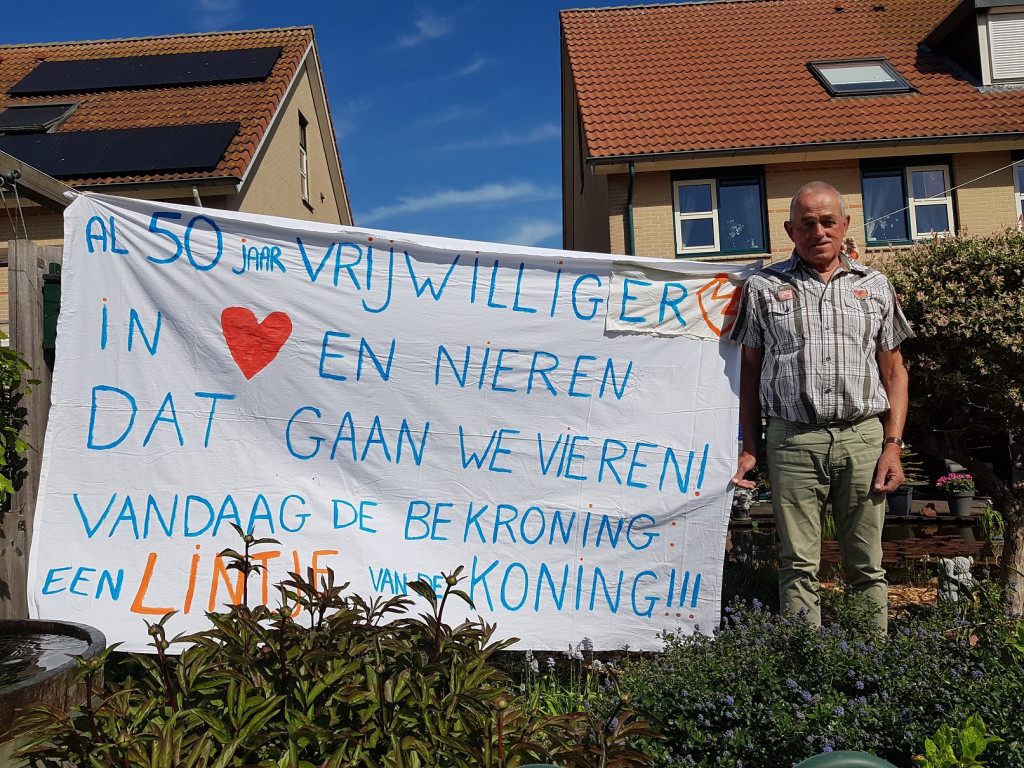 AL 50 jAAR VRIJWILLIGER
IN ❤ EN NIEREN
DAT GAAN WE VIEREN!
VANDAAG DE BEKRONING:
EEN LINTJE VAN DE KONING!!!